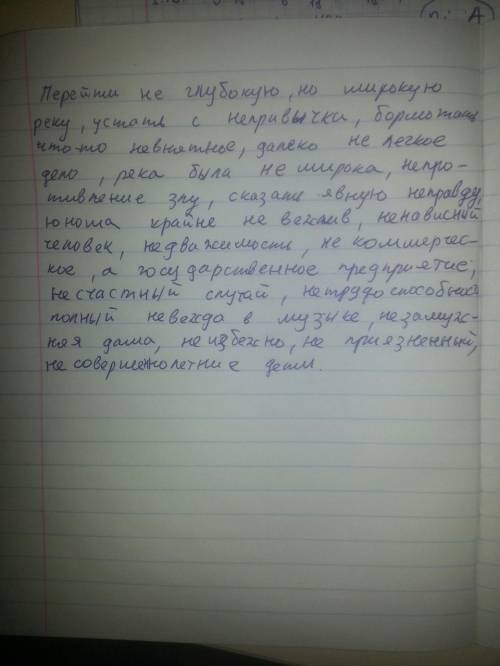 А
Перейти не глубокую, но широкую
реку, устать с непривычки, бормотать
что-то невнятное, далеко не легкое
дело, река была не широка, непро-
тивление злу, сказать явную неправду,
юноша крайне не вежлив, ненависный
человек, недвижимость, не коммерчес-
кое, а государственное предприятие,
несчастный случай, нетрудоспособность
полный невежда в музыке, незамуж-
няя дама, неизбежно, не приязненный,
несовершенолетние дети.